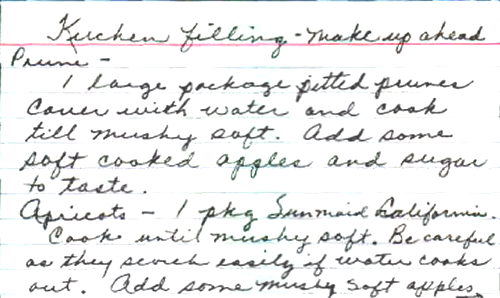 Kuchen filling - make up ahead
Prune -
1 large package pitted prunes
Cover with water and cook
till mushy soft. Add some
soft cooked apples and sugar
to taste.
Apricots - 1 pkg Sunmaid California.
Cook until mushy soft. Be careful
as they scorch easily if water cooks
out. Add some mushy soft apples